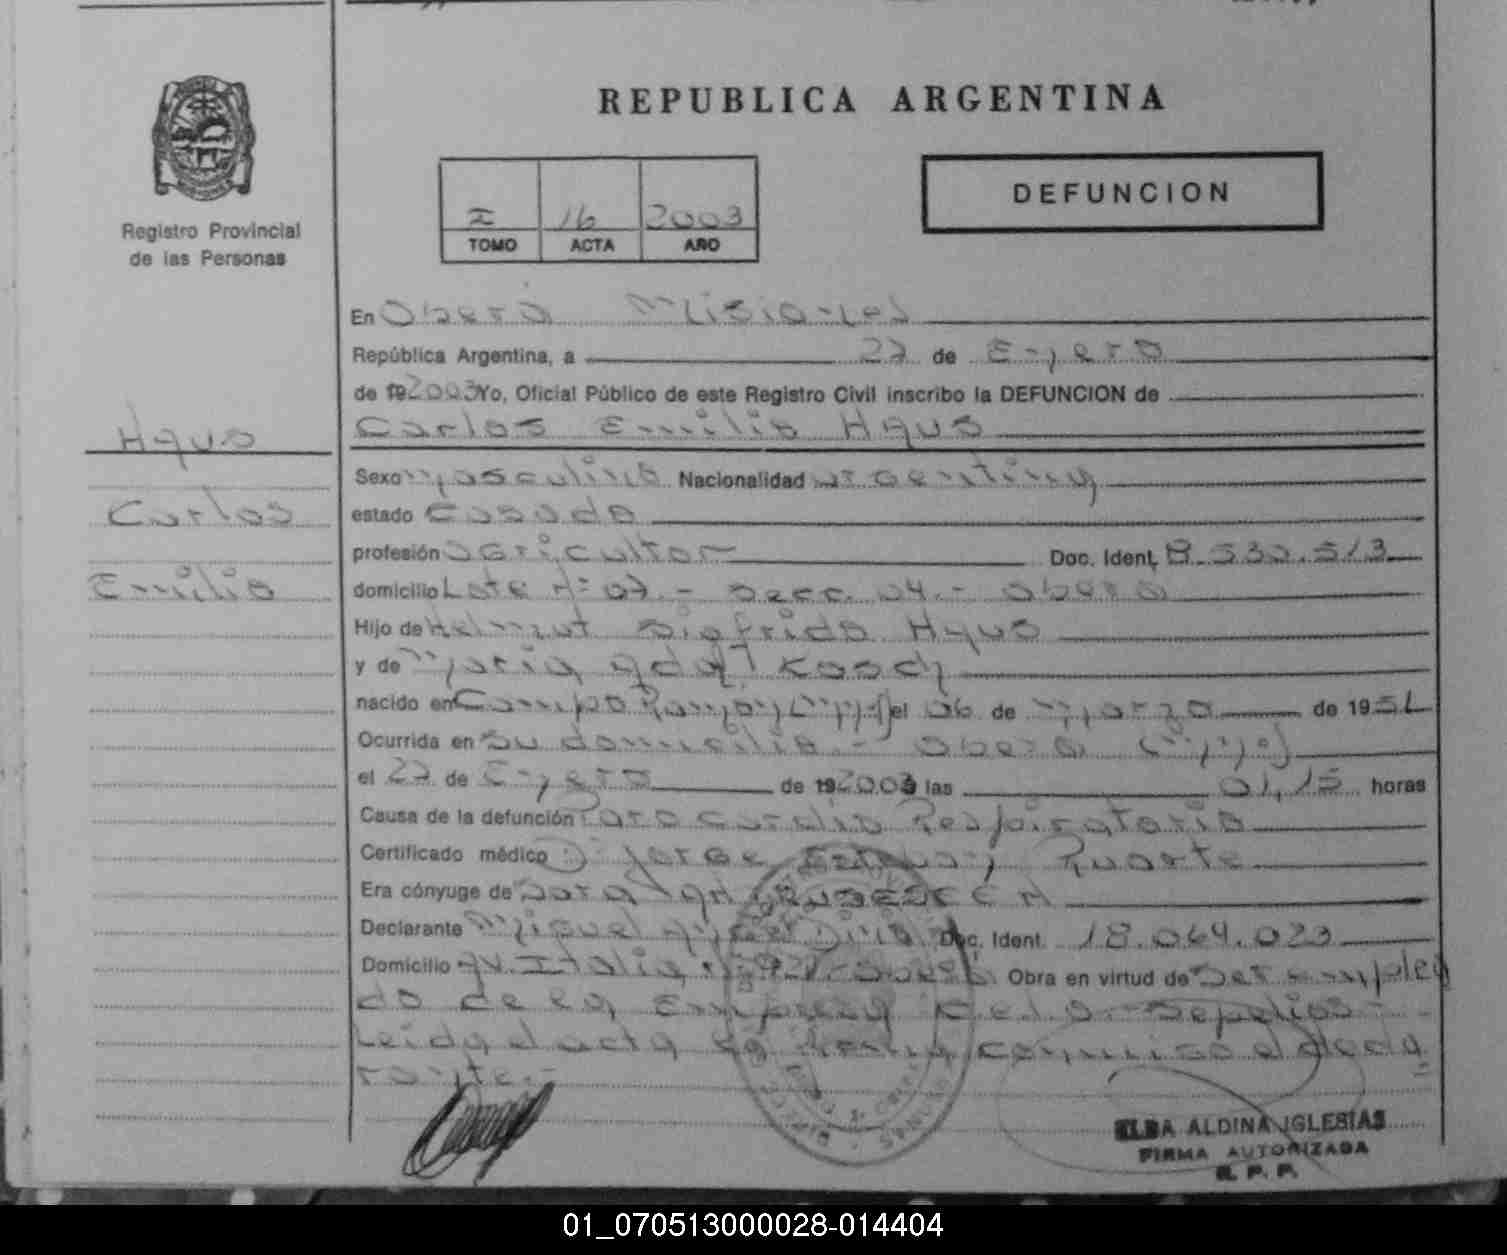 REPUBLICA ARGENTINA
DEFUNCION
I 16 2003
TOMO ACTA AÑO
Registro Provincial
de las Personas
En Oberá Misiones
República Argentina, a 27 de Enero
de 192003 Yo, Oficial Público de este Registro Civil inscribo la DEFUNCION de
Carlos Emilio Haus
Haus
Carlos
Emilio
Sexo masculino Nacionalidad argentina
estado casado
profesión agricultor Doc. Ident. 8.530.513
domicilio Lote Nº 07 - Secc. 04.- Oberá
Hijo de Helmut Sigfrido Haus
y de María Kosch
nacido en Campo Ramón (Mnes) el 06 de Marzo de 1951
Ocurrida en su domicilio - Oberá (Mnes)
el 27 de Enero de 192003 a las 01,15 horas
Causa de la defunción Paro Cardio Respiratorio
Certificado médico Dr Jorge Esteban Duarte
Era cónyuge de Sara
Declarante Miguel Doc. Ident. 18.064.023
Domicilio Av. Italia Oberá Obra en virtud de ser emplea
do de la Empresa Sepelios -
Leida el acta la firma conmigo el decla
rante.-
ELBA ALDINA IGLESIAS
FIRMA AUTORIZADA
R. P. P.
01_070513000028-014404